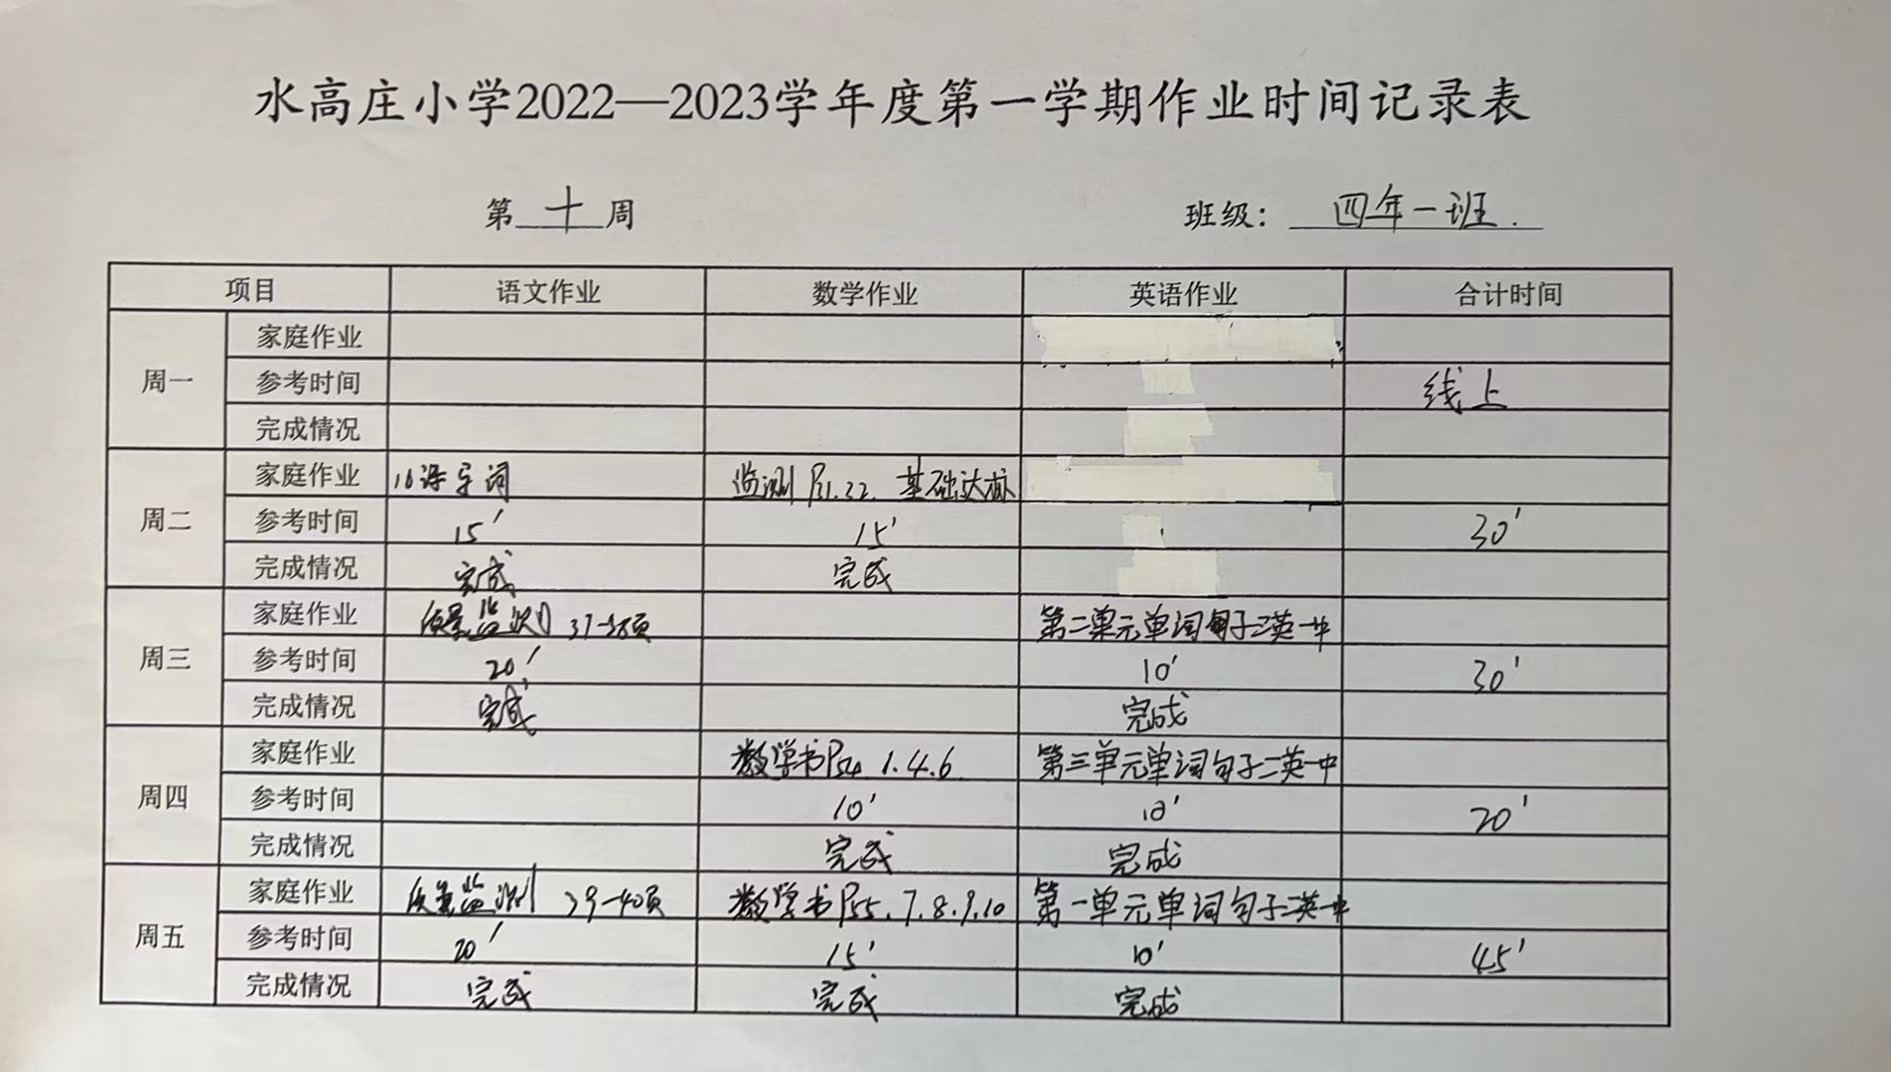 水高庄小学2022—2023学年度第一学期作业时间记录表
第 十 周 班级： 四年一班.
项目 语文作业 数学作业 英语作业 合计时间
周一 家庭作业
参考时间 线上
完成情况
周二 家庭作业 16课字词 监测P31.32. 基础达标
参考时间 15' 15' 30'
完成情况 完成 完成
周三 家庭作业 质量监测 37-38页 第二单元单词句子二英一中
参考时间 20' 10' 30'
完成情况 完成 完成
周四 家庭作业 数学书P54 1.4.6 第三单元单词句子二英一中
参考时间 10' 10' 20'
完成情况 完成 完成
周五 家庭作业 质量监测 39-40页 数学书P55.7.8.9.10 第一单元单词句子二英一中
参考时间 20' 15' 10' 45'
完成情况 完成 完成 完成